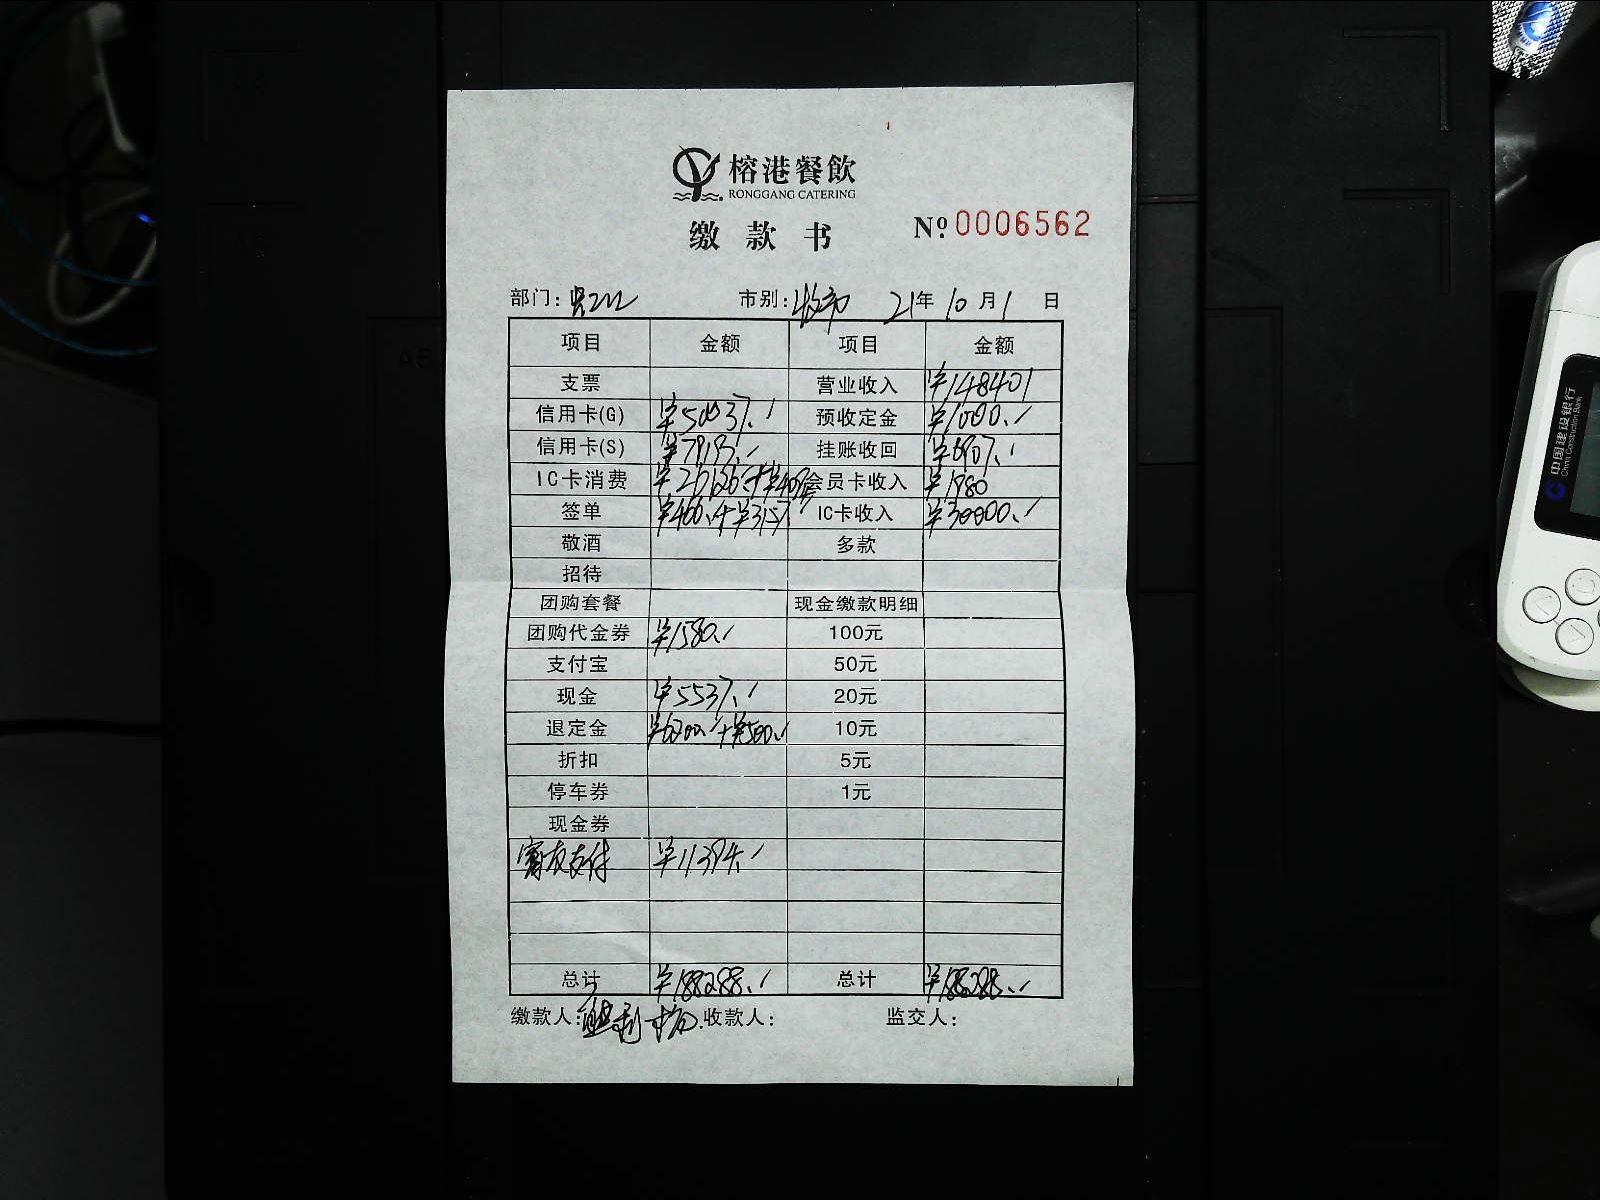 榕港餐飲
RONGGANG CATERING
缴款书 №0006562
部门: 市别: 21年10月1日
项目 金额 项目 金额
支票 营业收入 ¥148401
信用卡(G) 预收定金 ¥1000.
信用卡(S) 挂账收回 ¥6907.
IC卡消费 会员卡收入 ¥1980
签单 IC卡收入 ¥30000.
敬酒 多款
招待
团购套餐 现金缴款明细
团购代金券 ¥1580. 100元
支付宝 50元
现金 ¥5537. 20元
退定金 10元
折扣 5元
停车券 1元
现金券
支付 ¥11394.
总计 ¥188288. 总计 ¥188288.
缴款人: 收款人: 监交人:
中国建设银行
China Construction Bank